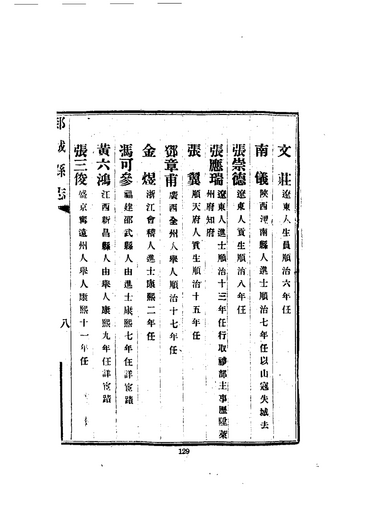 文莊 遼東人生員順治六年任
南儀 陝西渭南縣人進士順治七年任以山寇失城去
張崇德 遼東人貢生順治八年任
張應瑞 遼東人進士順治十三年任行取禮部主事歷陞萊
州府知府
張翼 順天府人貢生順治十五年任
鄧章甫 廣西全州人舉人順治十七年任
金煜 浙江會稽人進士康熙二年任
馮可參 福建邵武縣人由進士康熙七年任詳宦蹟
黃六鴻 江西新昌縣人由舉人康熙九年任詳宦蹟
張三俊 盛京寧遠州人舉人康熙十一年任
郯城縣志
八
129